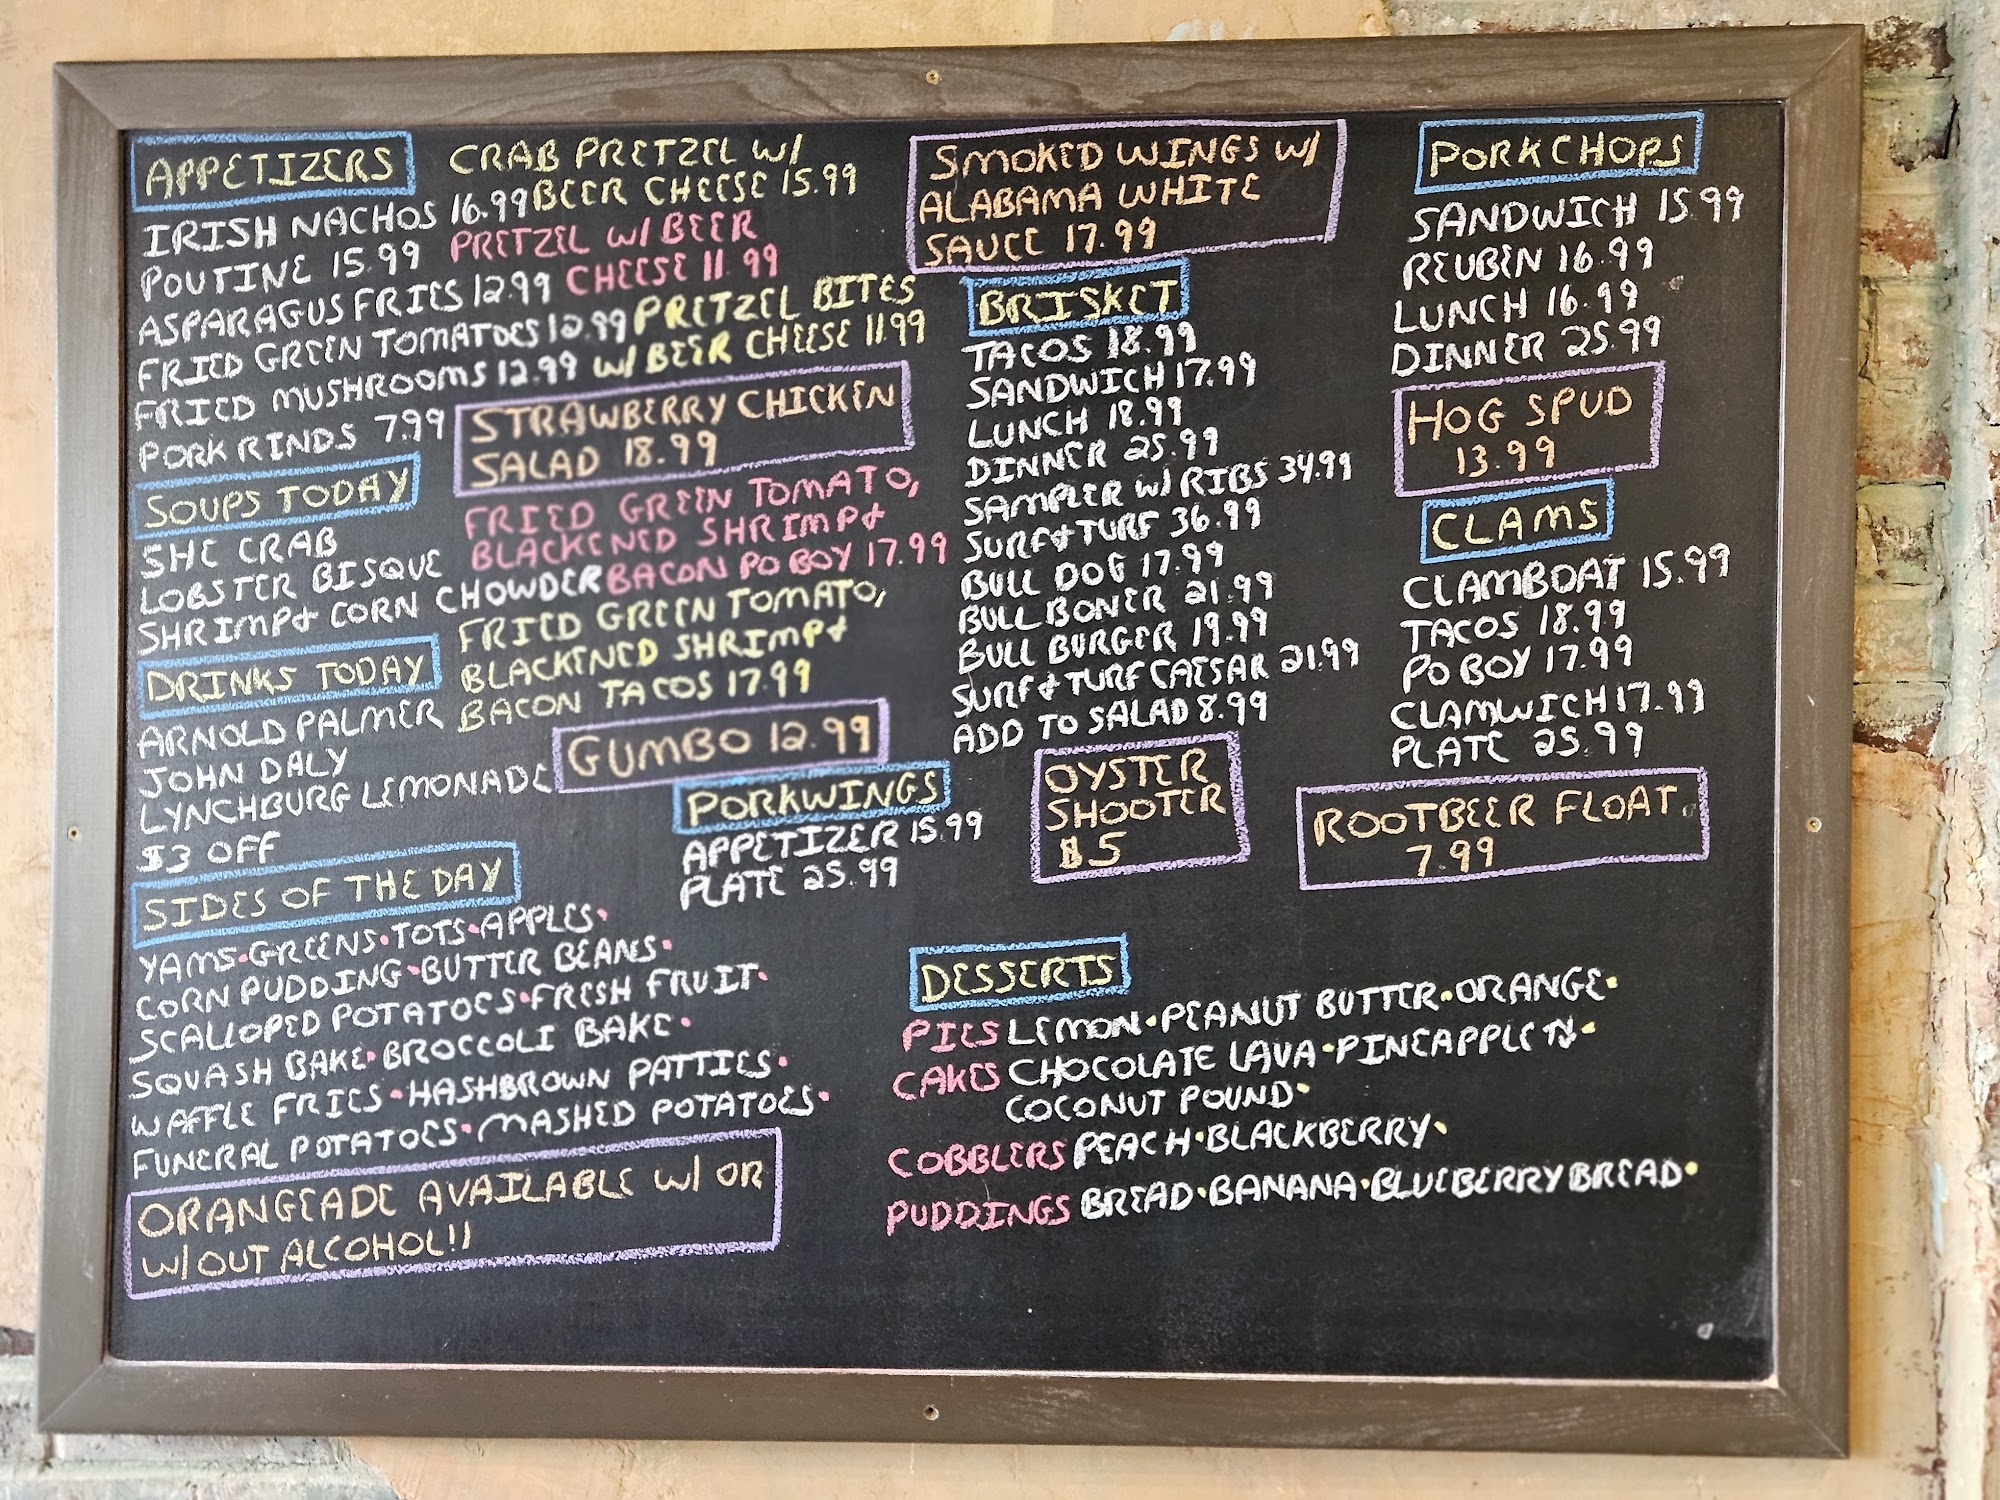 APPETIZERS
IRISH NACHOS 16.99
POUTINE 15.99
ASPARAGUS FRIES 12.99
FRIED GREEN TOMATOES 12.99
FRIED MUSHROOMS 12.99
PORK RINDS 7.99
SOUPS TODAY
SHE CRAB
LOBSTER BISQUE
SHRIMP & CORN CHOWDER
DRINKS TODAY
ARNOLD PALMER
JOHN DALY
LYNCHBURG LEMONADE
$3 OFF
SIDES OF THE DAY
YAMS•GREENS•TOTS•APPLES•
CORN PUDDING•BUTTER BEANS•
SCALLOPED POTATOES•FRESH FRUIT•
SQUASH BAKE•BROCCOLI BAKE•
WAFFLE FRIES•HASHBROWN PATTIES•
FUNERAL POTATOES•MASHED POTATOES•
ORANGEADE AVAILABLE W/ OR
W/OUT ALCOHOL!!
CRAB PRETZEL W/
BEER CHEESE 15.99
PRETZEL W/ BEER
CHEESE 11.99
PRETZEL BITES
W/ BEER CHEESE 11.99
STRAWBERRY CHICKEN
SALAD 18.99
FRIED GREEN TOMATO,
BLACKENED SHRIMP &
BACON PO BOY 17.99
FRIED GREEN TOMATO,
BLACKENED SHRIMP &
BACON TACOS 17.99
GUMBO 12.99
PORKWINGS
APPETIZER 15.99
PLATE 25.99
SMOKED WINGS W/
ALABAMA WHITE
SAUCE 17.99
BRISKET
TACOS 18.99
SANDWICH 17.99
LUNCH 18.99
DINNER 25.99
SAMPLER W/ RIBS 34.99
SURF & TURF 36.99
BULL DOG 17.99
BULL BONER 21.99
BULL BURGER 19.99
SURF & TURF CAESAR 21.99
ADD TO SALAD 8.99
OYSTER
SHOOTER
$5
PORKCHOPS
SANDWICH 15.99
REUBEN 16.99
LUNCH 16.99
DINNER 25.99
HOG SPUD
13.99
CLAMS
CLAMBOAT 15.99
TACOS 18.99
PO BOY 17.99
CLAMWICH 17.99
PLATE 25.99
ROOTBEER FLOAT
7.99
DESSERTS
PIES LEMON•PEANUT BUTTER•ORANGE•
CAKES CHOCOLATE LAVA•PINEAPPLE•
COCONUT POUND•
COBBLERS PEACH•BLACKBERRY•
PUDDINGS BREAD•BANANA•BLUEBERRY BREAD•